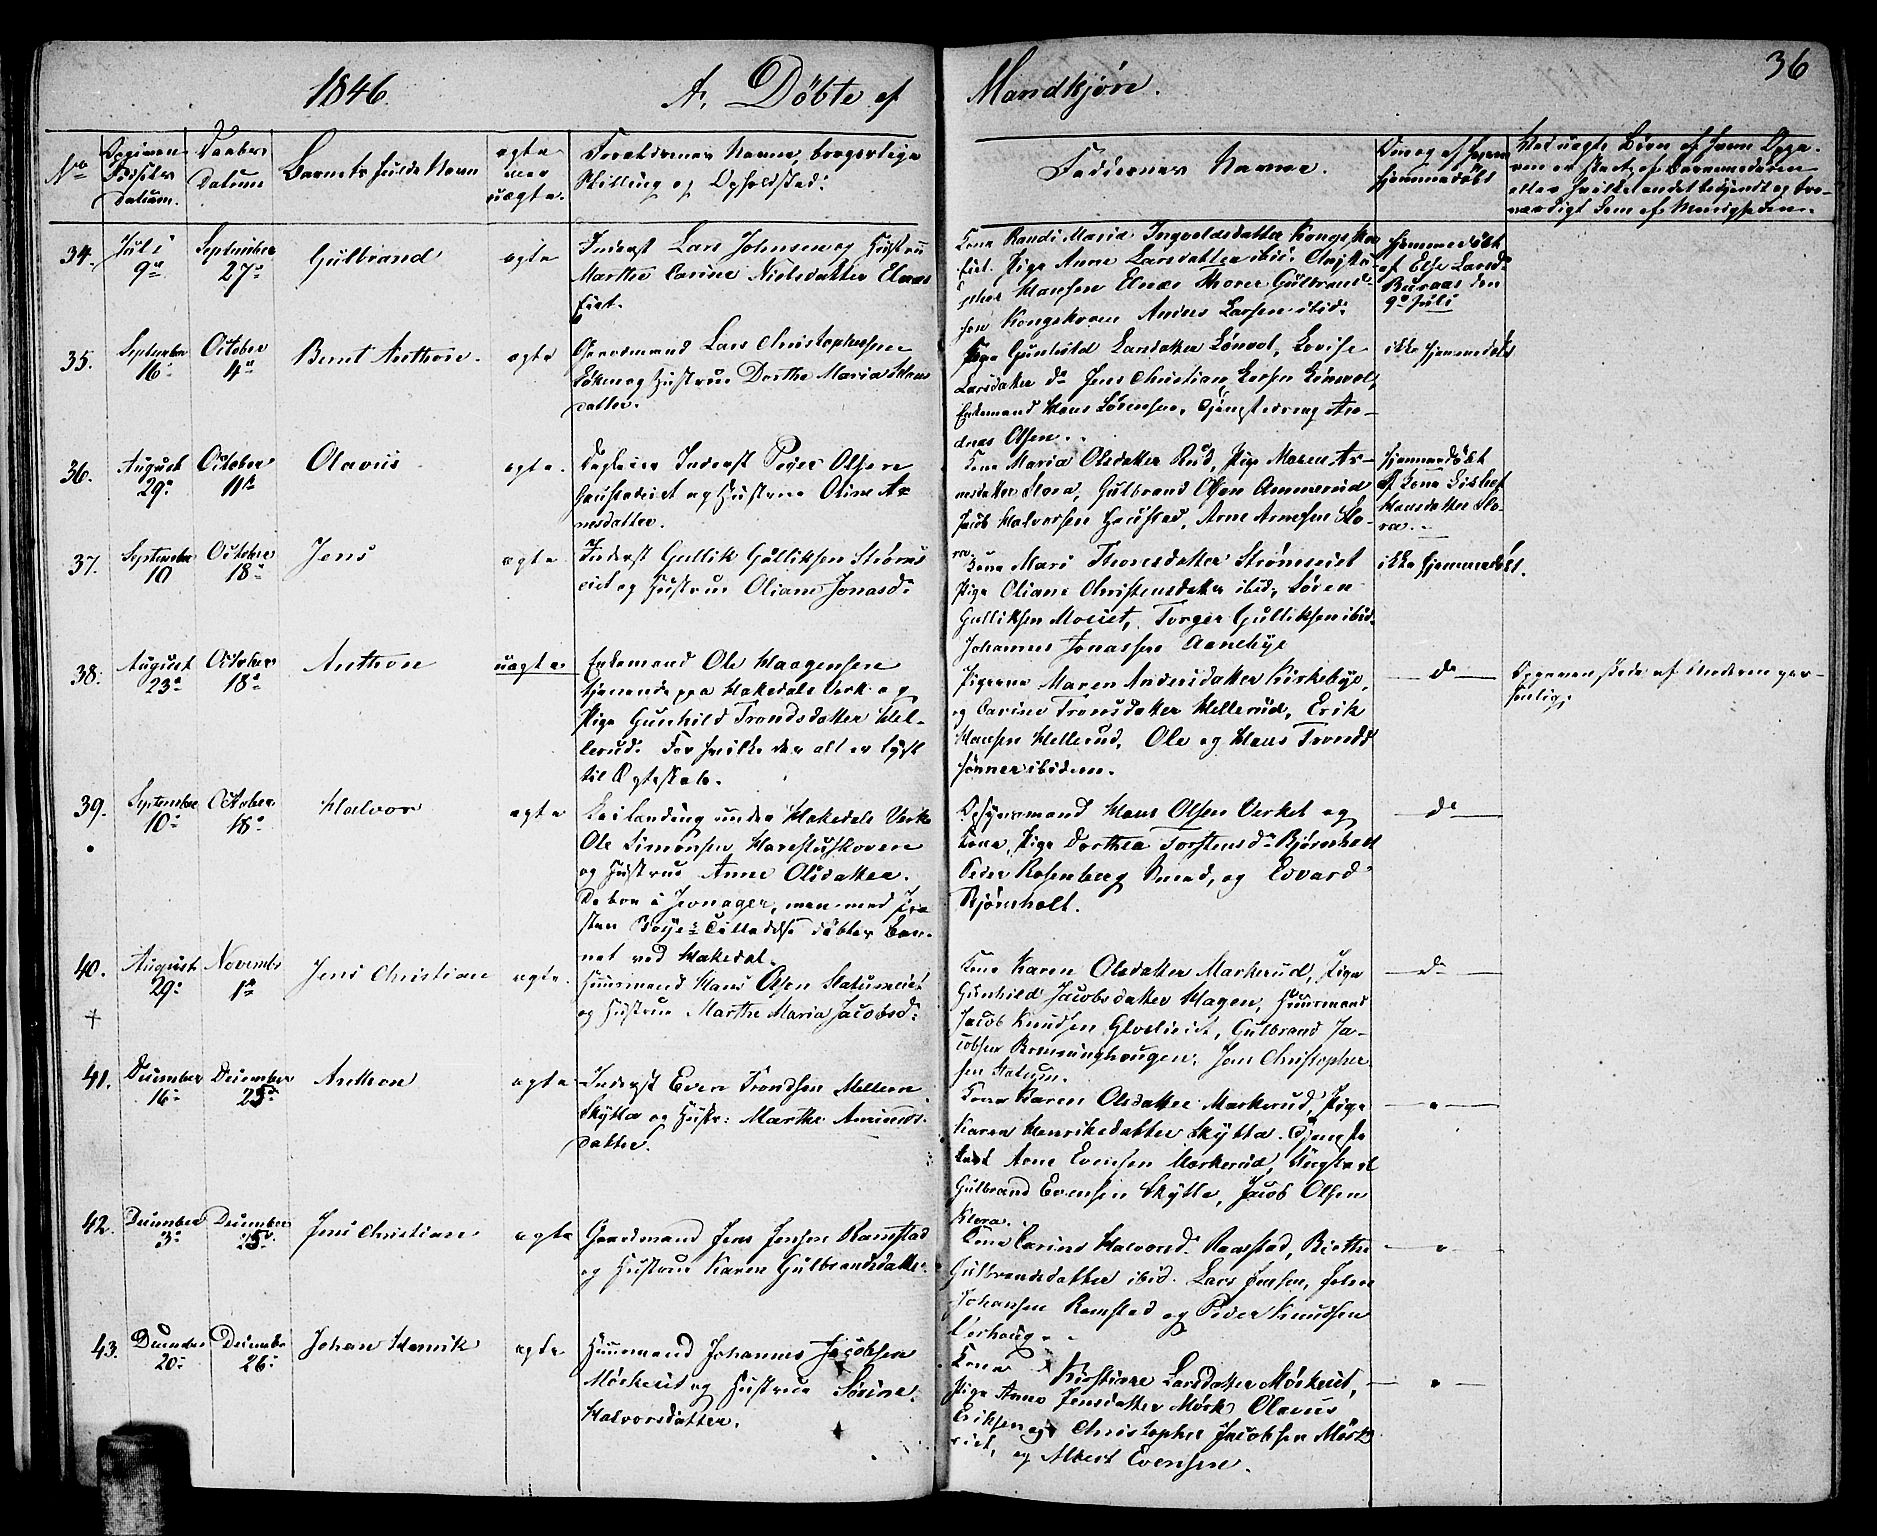 36
1846. A, Döbte af Mandkjön.
No
Datum.
Daabens Datum
Barnets fulde Navn
ægte eller uægte.
Forældrenes Navne, borgerlige
Stilling og Opholdsted.
Faddernes Navne.
Om og af hvem
hjemmedöbt
34. Juli 9de September 27de Gulbrand ægte
Inderst Lars Johnsen og Hustru
Marthe Carine Nielsdatter Elnæs
Kone Randi Maria Ingvoldsdatter Kongskov
eiet. Pige Anne Larsdatter ibid: Christo
pher Hansen Elnæs Thorer Gulbrand-
sen Kongskoven Anders Larsen ibid:
hjemmedöbt
af Else Larsd:
Buraas den
9de Juli
35. September 16de October 4de Bernt Anthon. ægte
Gaardmand Lars Christophersen
Lökken og Hustrue Dorthe Maria Hans
datter.
Pige Gunhild Larsdatter Lövvol, Lovise
Larsdatter do Jens Christian Larsen Lövvol,
Enkemand Hans Sörensen, An-
dreas Olsen.
ikke hjemmedöbt
36. August 29de October 11te Olavus ægte.
Inderst Peder Olsen
og Hustrue Oline Ar
nesdatter.
Kone Maria Olsdatter Rud, Pige Maren Ar-
nesdatter Slora, Gulbrand Olsen Ammerud
Jacob Halvorsen Haustad, Arne Arnesen Slo-
ra.
hjemmedöbt
af Kone Lisbet
Hansdatter Slo-
ra.
37. September 10 October 18de Jens ægte
Inderst Gullik Gulliksen Ströms
eiet og Hustrue Oliane Jonasd:
Kone Mari Thoresdatter Strömseiet
Pige Oliane Christensdatter ibid, Sören
Gulliksen Moeiet, Torger Gulliksen ibid.
Johannes Jonassen Aanebye
ikke hjemmedöbt.
38. August 23de October 18de Anthon uægte
Enkemand Ole Haagensen
tjenende paa Hakedals Verk og
Pige Gunhild Trondsdatter Hel-
lerud. For hvilke der alt er lyst
til Ægteskab.
Pigerne Maren Andersdatter Kirkebye,
og Carine Tronsdatter Hellerud, Erik
Hansen Hellerud, Ole og Hans Tronds
sönner ibidem.
do
Opgaven skede af Moderen per-
sonlig.
39. September 10de October 18de Halvor ægte
under Hakedals Verk
Ole Simonsen Harestuskoven
og Hustrue Anne Olsdatter.
De boe i Jevnager, men med Præ
sten Tilladelse döbtes Bar-
net ved Hakedal.
Hans Olsen Verket og
Kone, Pige Dorthea Torstensd: Björnholt
Peder Rosenberg Smed, og Edvard
Björnholt.
do
40. August 29de November 1te Jens Christian ægte.
Huusmand Hans Olsen Slatumeiet
og Hustrue Marthe Maria Jacobsd:
Kone Karen Olsdatter Markerud, Pige
Gunhild Jacobsdatter Hagen, Huusmand
Jacob Knudsen Gloslieiet, Gulbrand Ja-
cobsen Jens Christopher
sen Slatum.
do
41. December 16de December 25de Anthon ægte
Inderst Even Trondsen Mellem
Skytta og Hustr: Marthe Amunds-
datter.
Kone Karen Olsdatter Markerud, Pige
Karen Henriksdatter Skytta.
Arne Evensen Markerud, Ungkarl
Gulbrand Evensen Skytta, Jacob Olsen
Klora.
42. December 3de December 25de Jens Christian ægte
Gaardmand Jens Jensen Ramstad
og Hustrue Karen Gulbrandsdatter.
Kone Carine Halvorsd: Ramstad, Birthe
Gulbrandsdatter ibid. Lars Jensen, John
Johansen Ramstad og Peder Knudsen
43. December 20de December 26de Johan Henrik ægte
Huusmand Johannes Jacobsen
Mörkeiet og Hustrue Sörine
Halvorsdatter.
Kone Kirstiane Larsdatter Mörkeiet,
Pige Anne Jensdatter Mörk Olavus
Eriksen og Christopher Jacobsen Mörk
eiet, og Albert Evensen.